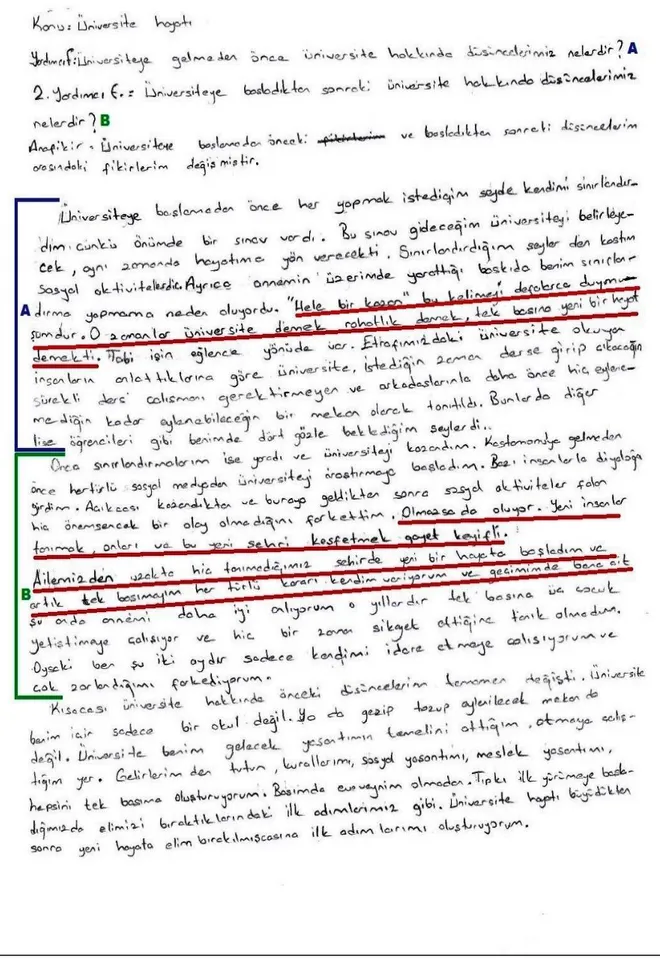 Konu: Üniversite hayatı
Yardımcıf: Üniversiteye gelmeden önce üniversite hakkında düşüncelerimiz nelerdir? A
2. Yardımcı f. = Üniversiteye başladıktan sonraki üniversite hakkında düşüncelerimiz
nelerdir? B
Anafikir = Üniversiteye başlamadan önceki fikirlerim ve başladıktan sonraki düşüncelerim
arasındaki fikirlerim değişmiştir.
Üniversiteye başlamadan önce her yapmak istediğim şeyde kendimi sınırlandır-
dım çünkü önümde bir sınav vardı. Bu sınav gideceğim üniversiteyi belirleye-
cek, aynı zamanda hayatıma yön verecekti. Sınırlandırdığım şeyler den kastım
sosyal aktivitelerdir. Ayrıca annemin üzerimde yarattığı baskıda benim sınırlan-
A dırma yapmama neden oluyordu. "Hele bir kazan" bu kelimeyi defalarca duymu-
şumdur. O zamanlar üniversite demek rahatlık demek, tek başına yeni bir hayat
demekti. Tabi işin eğlence yönüde var. Etrafımızdaki üniversite okuyan
insanların anlattıklarına göre üniversite, istediğin zaman derse girip çıkacağın
sürekli ders çalışması gerektirmeyen ve arkadaşlarınla daha önce hiç eğlene-
mediğin kadar eğlenebileceğin bir mekan olarak tanıtıldı. Bunlarda diğer
lise öğrencileri gibi benimde dört gözle beklediğim şeylerdi..
Onca sınırlandırmalarım işe yaradı ve üniversiteyi kazandım. Kastamonuya gelmeden
önce hertürlü sosyal medyadan üniversiteyi araştırmaya başladım. Bazı insanlarla diyaloğa
girdim. Açıkcası kazandıktan ve buraya geldikten sonra sosyal aktiviteler falan
hiç önemsencek bir olay olmadığını farkettim. Olmasa da oluyor. Yeni insanlar
tanımak, onları ve bu yeni şehri keşfetmek gayet keyifli.
Ailemizden uzakta hiç tanımadığımız şehirde yeni bir hayata başladım ve
B artık tek başımayım her türlü kararı kendim veriyorum ve geçimimde bana ait
şu anda annemi daha iyi anlıyorum o yıllardır tek başına üç çocuk
yetiştimeye çalışıyor ve hiç bir zaman şikayet ettiğine tanık olmadım.
Oysaki ben şu iki aydır sadece kendimi idare etmeye çalışıyorum ve
çok zorlandığımı farkediyorum.
Kısacası üniversite hakkında önceki düşüncelerim tamamen değişti. Üniversite
benim için sadece bir okul değil. Ya da gezip tozup eğlenilecek mekan da
değil. Üniversite benim gelecek yaşantımın temelini attığım, atmaya çalış-
tığım yer. Gelirlerim den tutun, kurallarımı, sosyal yaşantımı, meslek yaşantımı,
hepsini tek başıma oluşturuyorum. Başımda ebeveynim olmadan. Tıpkı ilk yürümeye başla-
dığımızda elimizi bıraktıklarındaki ilk adımlarımız gibi. Üniversite hayatı büyüdükten
sonra yeni hayata elim bırakılmışcasına ilk adımlarımı oluşturuyorum.